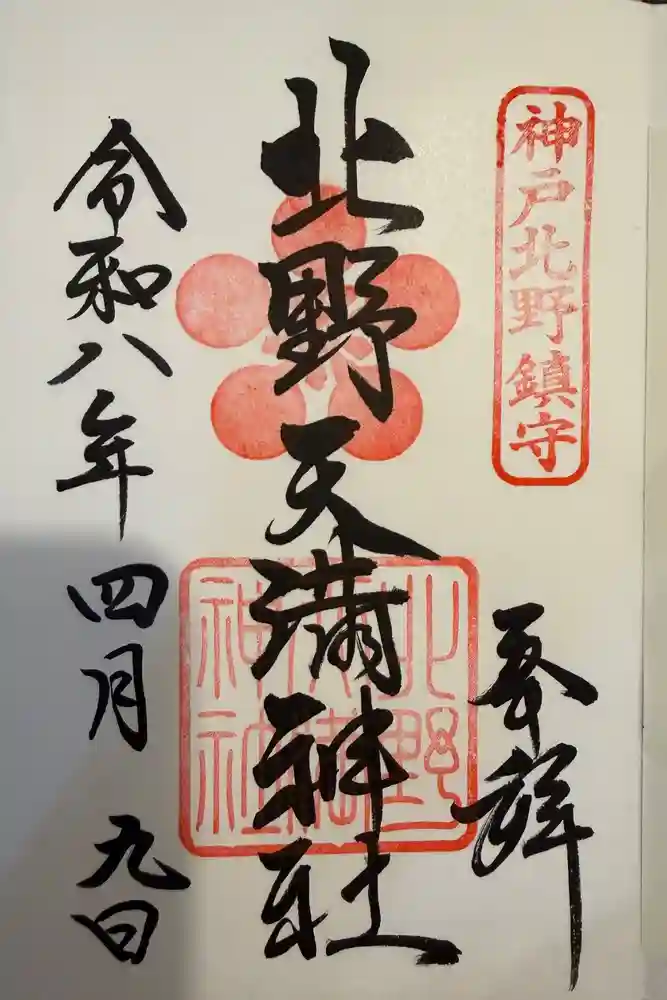 神戸北野鎮守
奉拝
北野天満神社
北野天満神社
令和八年四月九日